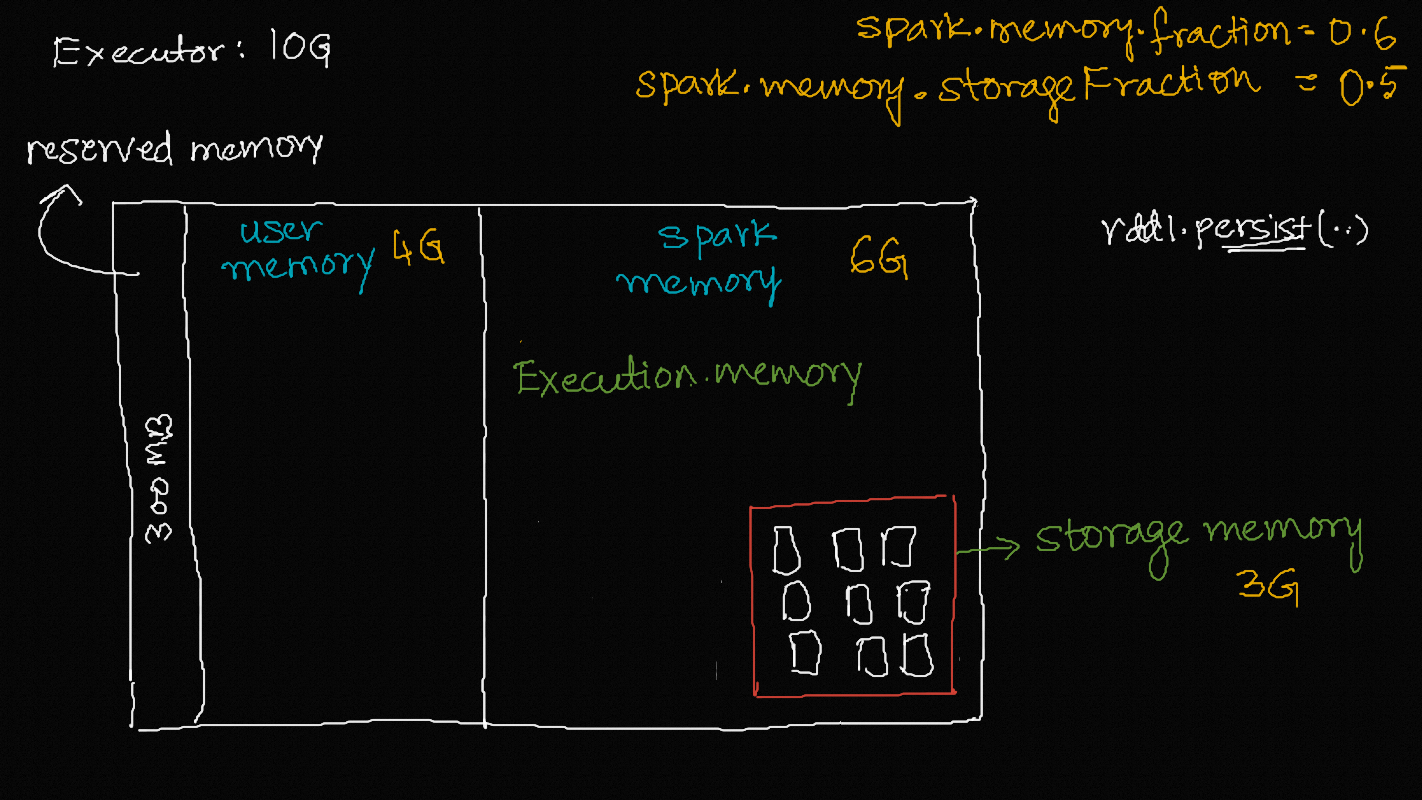 Executor: 10G
spark.memory.fraction = 0.6
spark.memory.storageFraction = 0.5
reserved memory
user memory 4G
spark memory 6G
rdd1.persist(..)
Execution.memory
300 MB
storage memory
3G